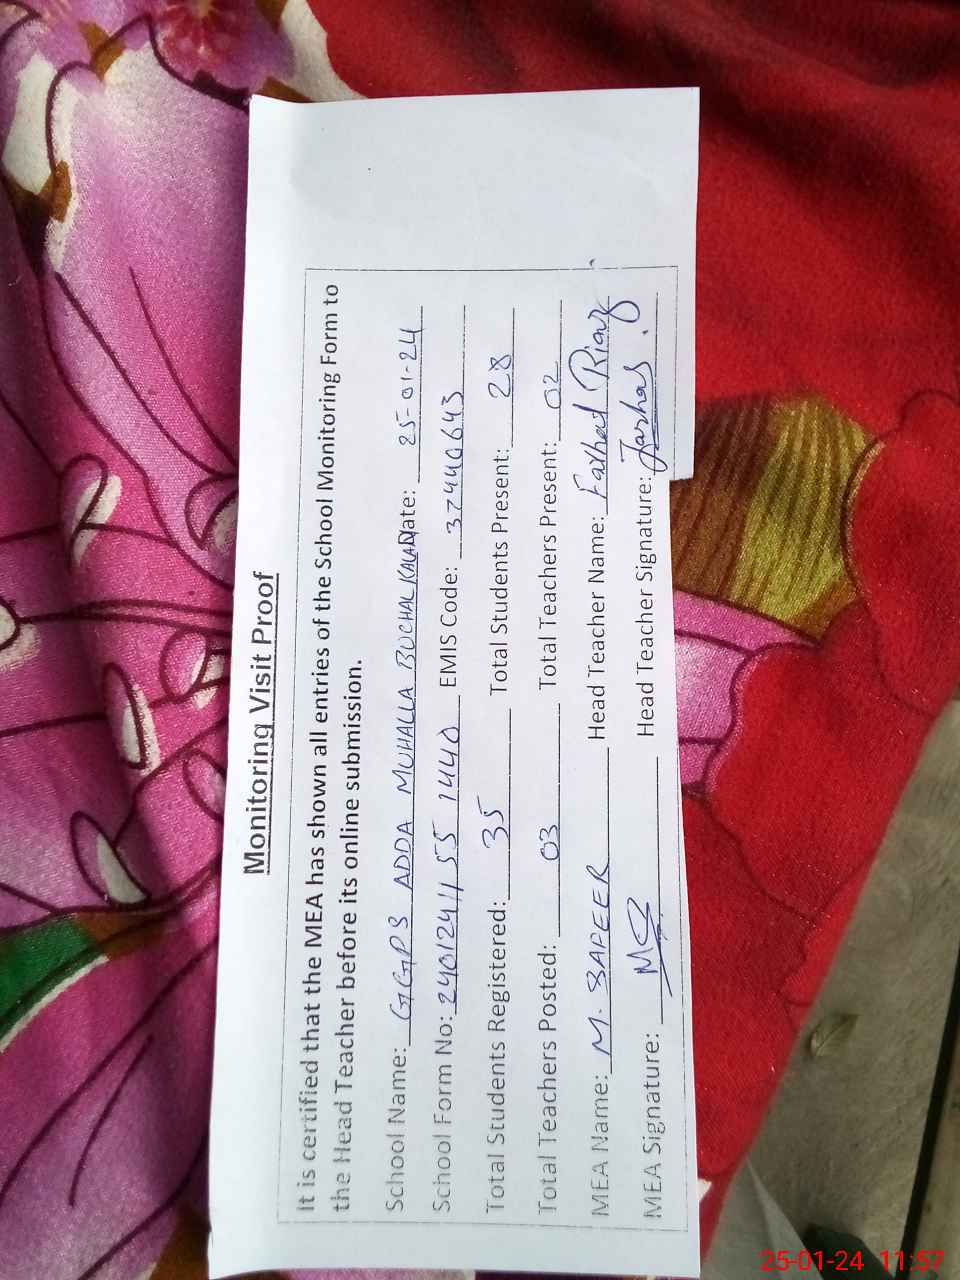 Monitoring Visit Proof
It is certified that the MEA has shown all entries of the School Monitoring Form to
the Head Teacher before its online submission.
School Name: GGPS ADDA MUHALLA BUCHAL KALAN Date: 25-01-24
School Form No: 2401241155 1440 EMIS Code: 37440643
Total Students Registered: 35 Total Students Present: 28
Total Teachers Posted: 03 Total Teachers Present: 02
MEA Name: M. SAFEER Head Teacher Name: Farhat Riaz
MEA Signature: MS Head Teacher Signature:
25-01-24 11:57